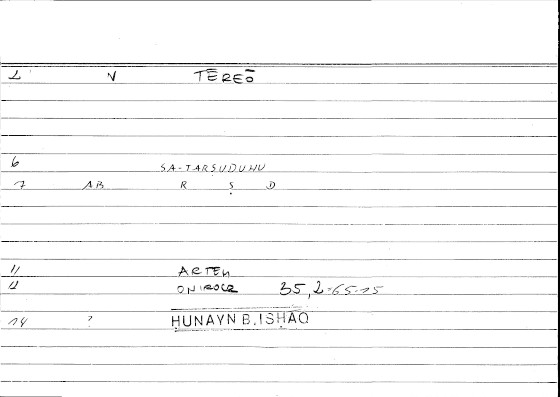 1 V TĒREŌ
6 SA-TARṢUDUHU
7 AB R Ṣ D
11 ARTEM
12 ONIROCR 35,2-65.15
14 ? ḤUNAYN B. ISḤĀQ